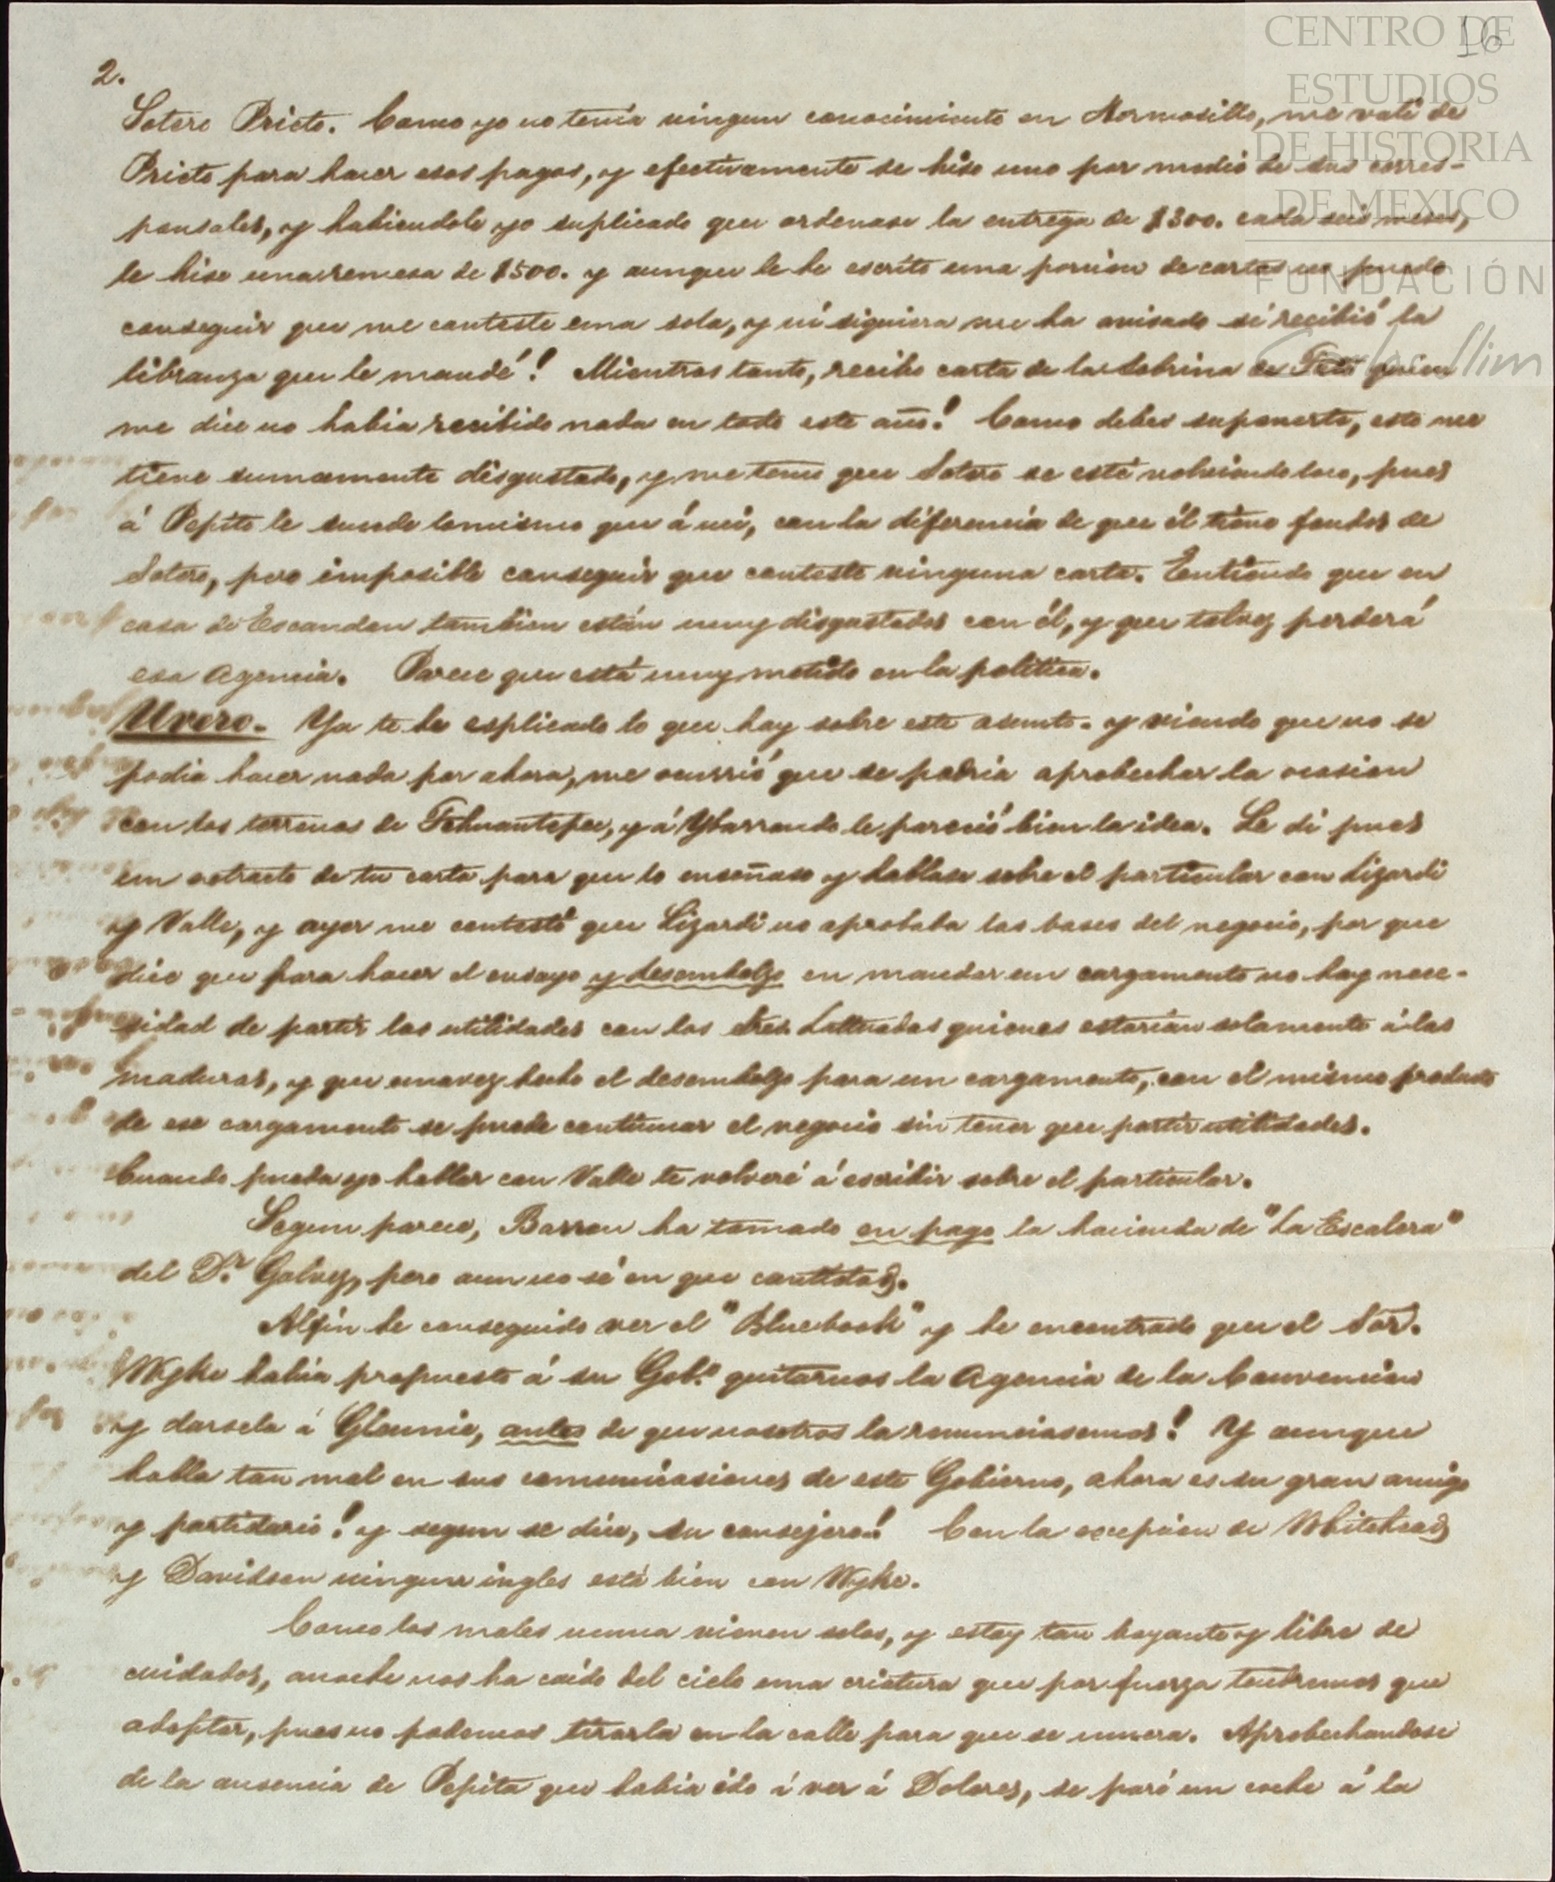 CENTRO DE
ESTUDIOS
DE HISTORIA
DE MEXICO
FUNDACIÓN
Carlos Slim
16
2.
Sotero Prieto. Como yo no tenia ningun conocimiento en Hermosillo, me valí de
Prieto para hacer esos pagos, y efectivamente se hiso uno por medio de sus corres-
ponsales, y habiendole yo suplicado que ordenase la entrega de $300. cada seis meses,
le hise una remesa de $500. y aunque le he escrito una porcion de cartas no puedo
conseguir que me conteste una sola, y ni siquiera me ha avisado si recibió la
libranza que le mandé! Mientras tanto, recibo carta de la sobrina de Tato quien
me dice no habia recibido nada en todo este año! Como debes suponerte, esto me
tiene sumamente disgustado, y me temo que Sotero se esté volviendo loco, pues
á Pepito le sucede lo mismo que á mi, con la diferencia de que él tiene fondos de
Sotero, pero imposible conseguir que conteste ninguna carta. Entiendo que en
casa de Escandon tambien están muy disgustados con él, y que talvez perderá
esa agencia. Parece que está muy metido en la politica.
Uvero. Ya te he esplicado lo que hay sobre este asunto. y viendo que no se
podia hacer nada por ahora, me ocurrió que se podria aprobechar la ocasion
con los terrenos de Tehuantepec, y á Ybarrondo le pareció bien la idea. Le di pues
un extracto de tu carta para que lo enseñase y hablase sobre el particular con Lizardi
y Valle, y ayer me contestó que Lizardi no aprobaba las bases del negocio, por que
dice que para hacer el ensayo y desembolzo en mandar un cargamento no hay nece-
sidad de partir las utilidades con los Sres. Lattuadas quienes estarian solamente á las
maduras, y que una vez hecho el desembolzo para un cargamento, con el mismo producto
de ese cargamento se puede continuar el negocio sin tener que partir utilidades.
Cuando pueda yo hablar con Valle te volveré á escribir sobre el particular.
Segun parece, Barron ha tomado en pago la hacienda de "La Escalera"
del Dr. Galvez, pero aun no sé en que cantidad.
Alfin he conseguido ver el "Bluebook" y he encontrado que el Sor.
Wyke habia propuesto á su Gobo. quitarnos la Agencia de la Convencion
y darsela á Glennie, antes de que nosotros la renunciasemos! Y aunque
habla tan mal en sus comunicasiones de este Gobierno, ahora es su gran amigo
y partidario! y segun se dice, su consejero! Con la ecepcion de Whitehead
y Davidson ningun ingles está bien con Wyke.
Como los males nunca vienen solos, y estoy tan boyante y libre de
cuidados, anoche nos ha caido del cielo una criatura que por fuerza tendremos que
adoptar, pues no podemos tirarla en la calle para que se muera. Aprobechandose
de la ausencia de Pepita que habia ido á ver á Dolores, se paró un coche á la